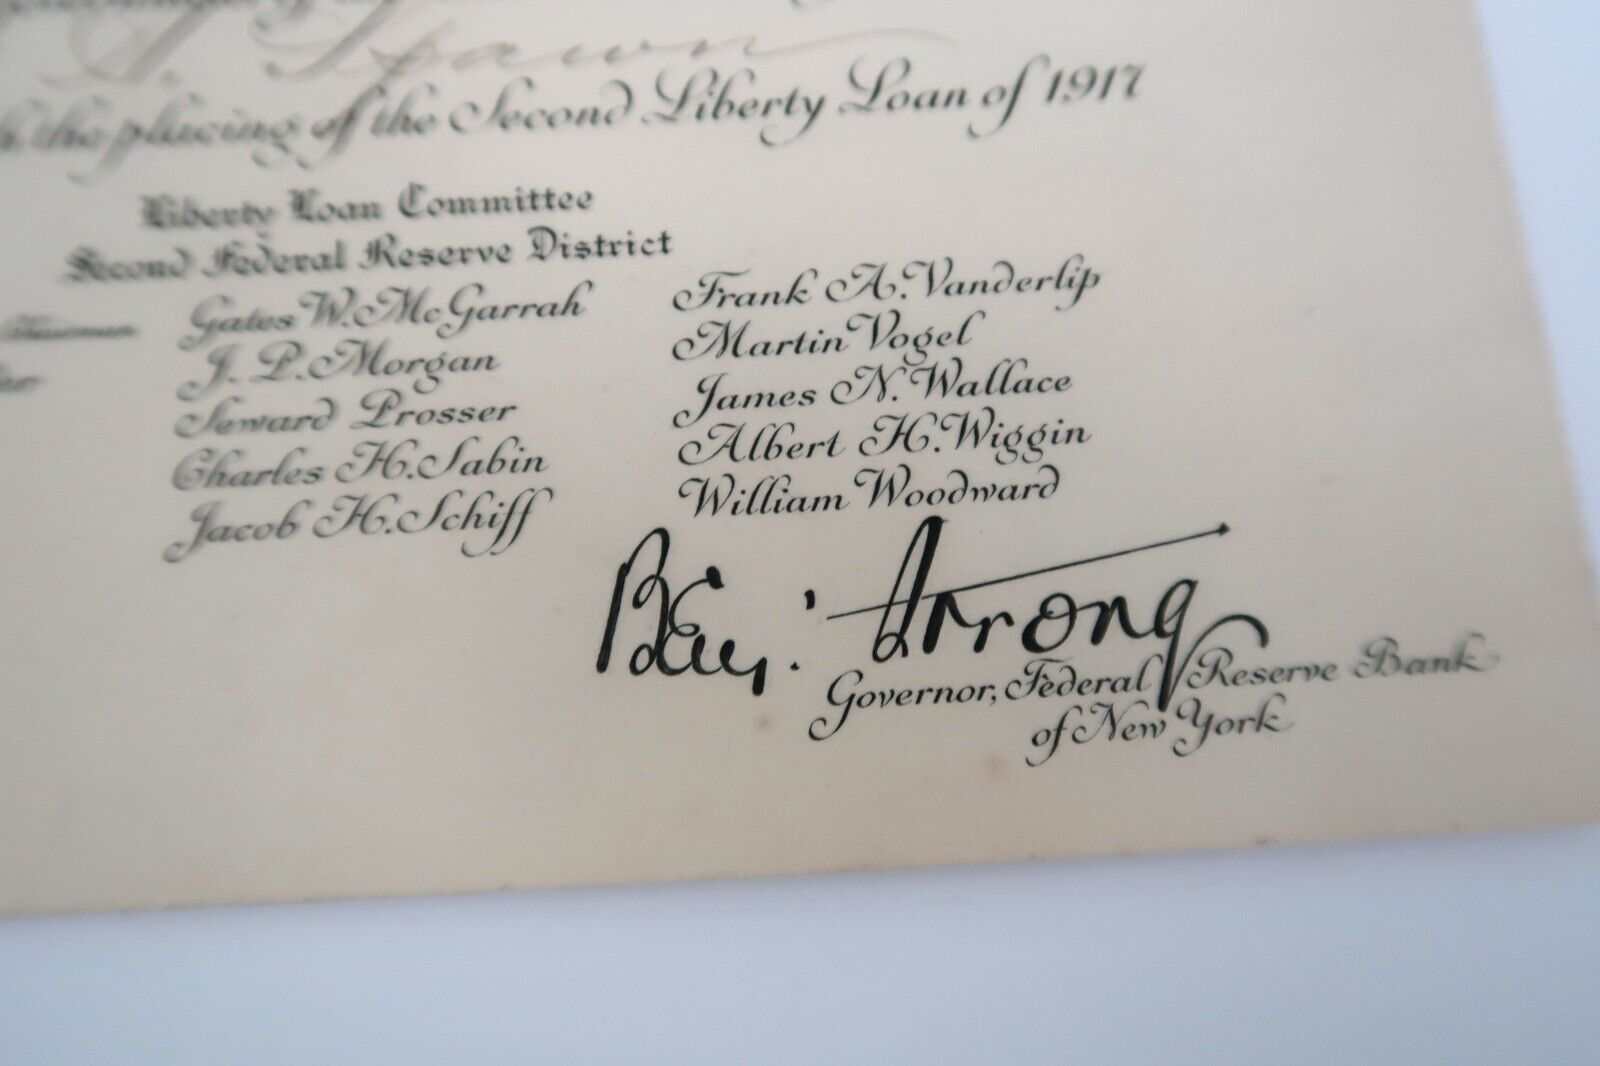 Spawn
the placing of the Second Liberty Loan of 1917
Liberty Loan Committee
Second Federal Reserve District
Chairman
Gates W. McGarrah
J. P. Morgan
Seward Prosser
Charles H. Sabin
Jacob H. Schiff
Frank A. Vanderlip
Martin Vogel
James N. Wallace
Albert H. Wiggin
William Woodward
Benj. Strong
Governor, Federal Reserve Bank
of New York